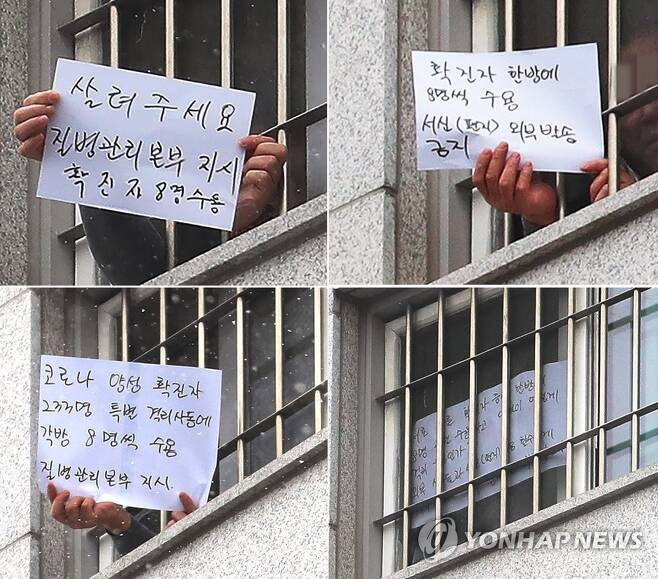 살려주세요
질병관리본부 지시
확진자 8명수용
확진자 한방에
8명씩 수용
서신(편지) 외부발송
금지
코로나 양성 확진자
233명 특별 격리사동에
각방 8명씩 수용
질병관리본부 지시.
YONHAP NEWS